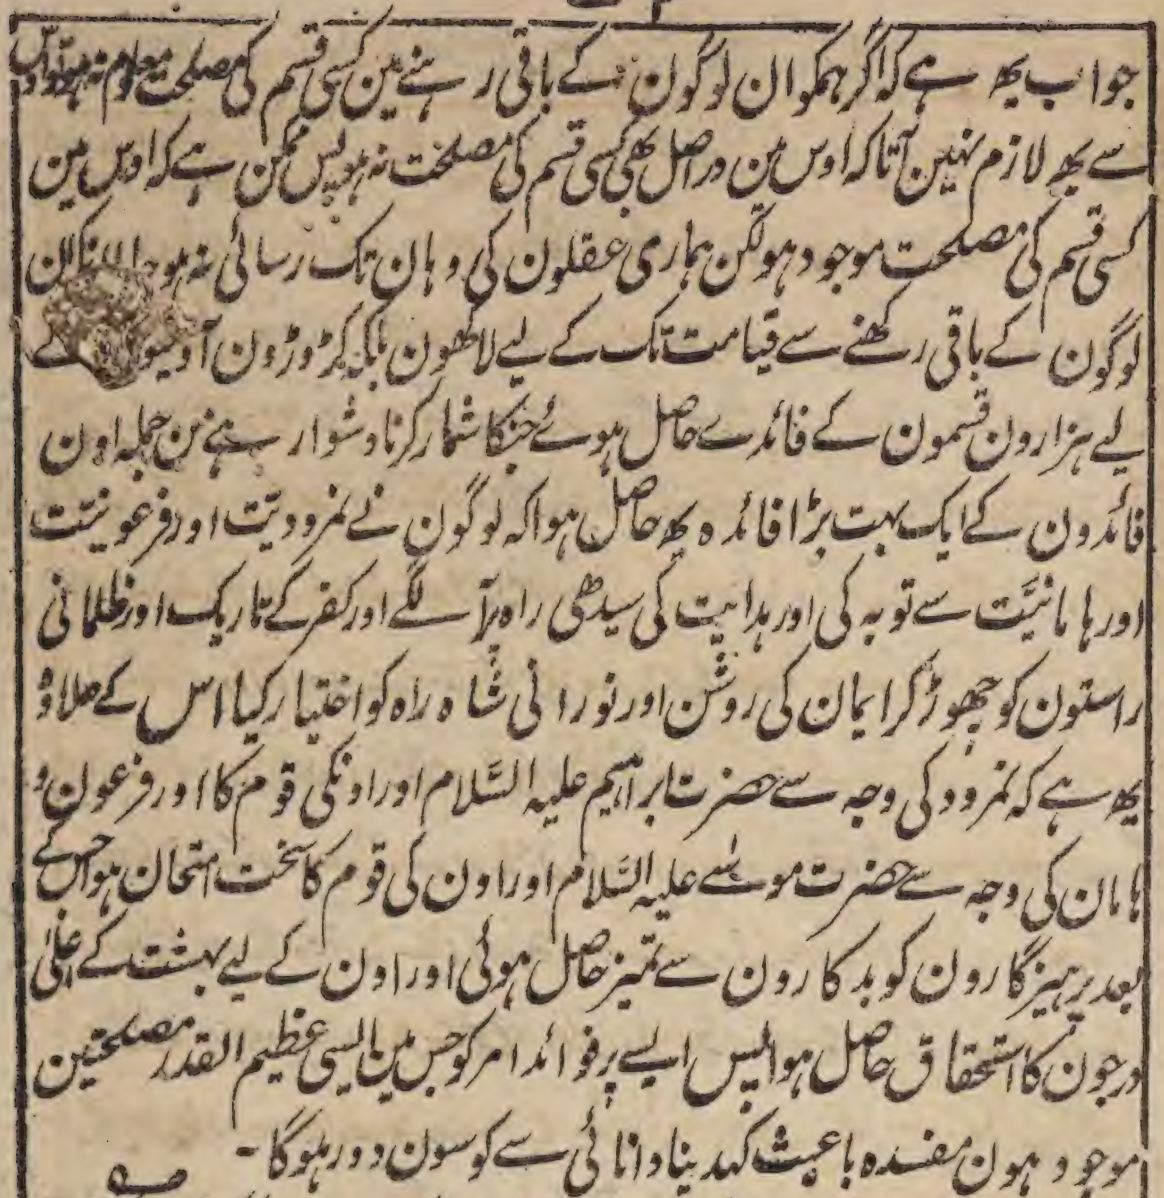 جواب یھ ہے کہ اگر ہمکو ان لوگون کے باقی رہنے مین کسی قسم کی مصلحت معلوم نہ ہو تو اس
سے یھ لازم نہین آتا کہ اوس مین دراصل بھی کسی قسم کی مصلحت نہ ہو پس ممکن ہے کہ اوس مین
کسی قسم کی مصلحت موجود ہو لکن ہماری عقلون کی وہان تک رسائی نہ ہو حالانکہ ان
لوگون کے باقی رکھنے سے قیامت تک کے لیے لاکھون بلکہ کڑوڑون آدمیون کے
لیے ہزارون قسمون کے فائدے حاصل ہوئے جنکا شمار کرنا دشوار ہے من جملہ اون
فائدون کے ایک بہت بڑا فائدہ یھ حاصل ہوا کہ لوگون نے نمرودیّت اور فرعونیّت
اور ہامانیّت سے توبہ کی اور ہدایت کی سیدھی راہ پر آ لگے اور کفر کے تاریک اور ظلمانی
راستون کو چھوڑ کر ایمان کی روشن اور نورانی شاہ راہ کو اختیار کیا اس کے علاوہ
یھ ہے کہ نمرود کی وجہ سے حضرت ابراہیم علیہ السَّلام اور اونکی قوم کا اور فرعون و
ہامان کی وجہ سے حضرت موسٰے علیہ السَّلام اور اون کی قوم کا سخت امتحان ہوا جس کے
بعد پرہیزگارون کو بدکارون سے تمیز حاصل ہوئی اور اون کے لیے بہشت کے اعلٰی
درجون کا استحقاق حاصل ہوا پس ایسے پر فوائد امر کو جس مین ایسی عظیم القدر مصلحتین
موجود ہون مفسدہ یا عبث کہدینا دانائی سے کوسون دور ہوگا -